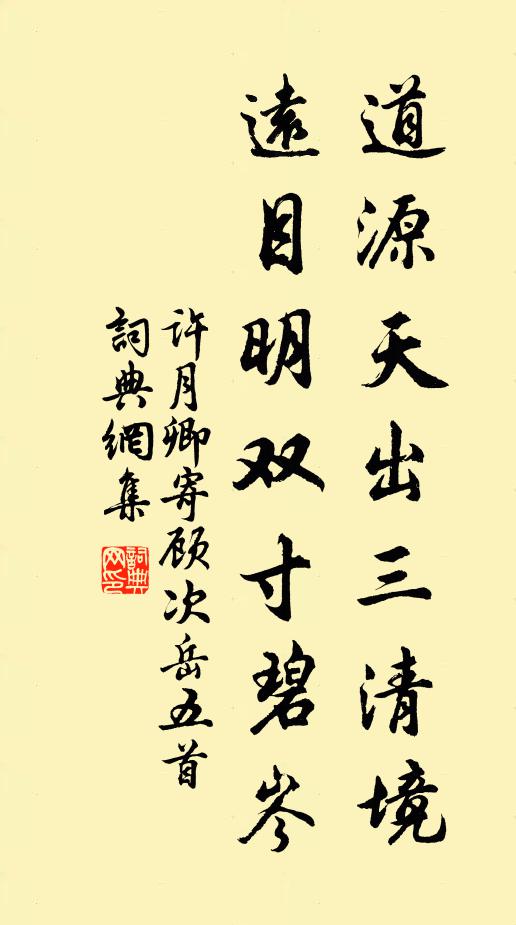 道源天出三清境
遠目明双寸碧岑
许月卿寄顾次岳五首
詞典網集
詞典网印